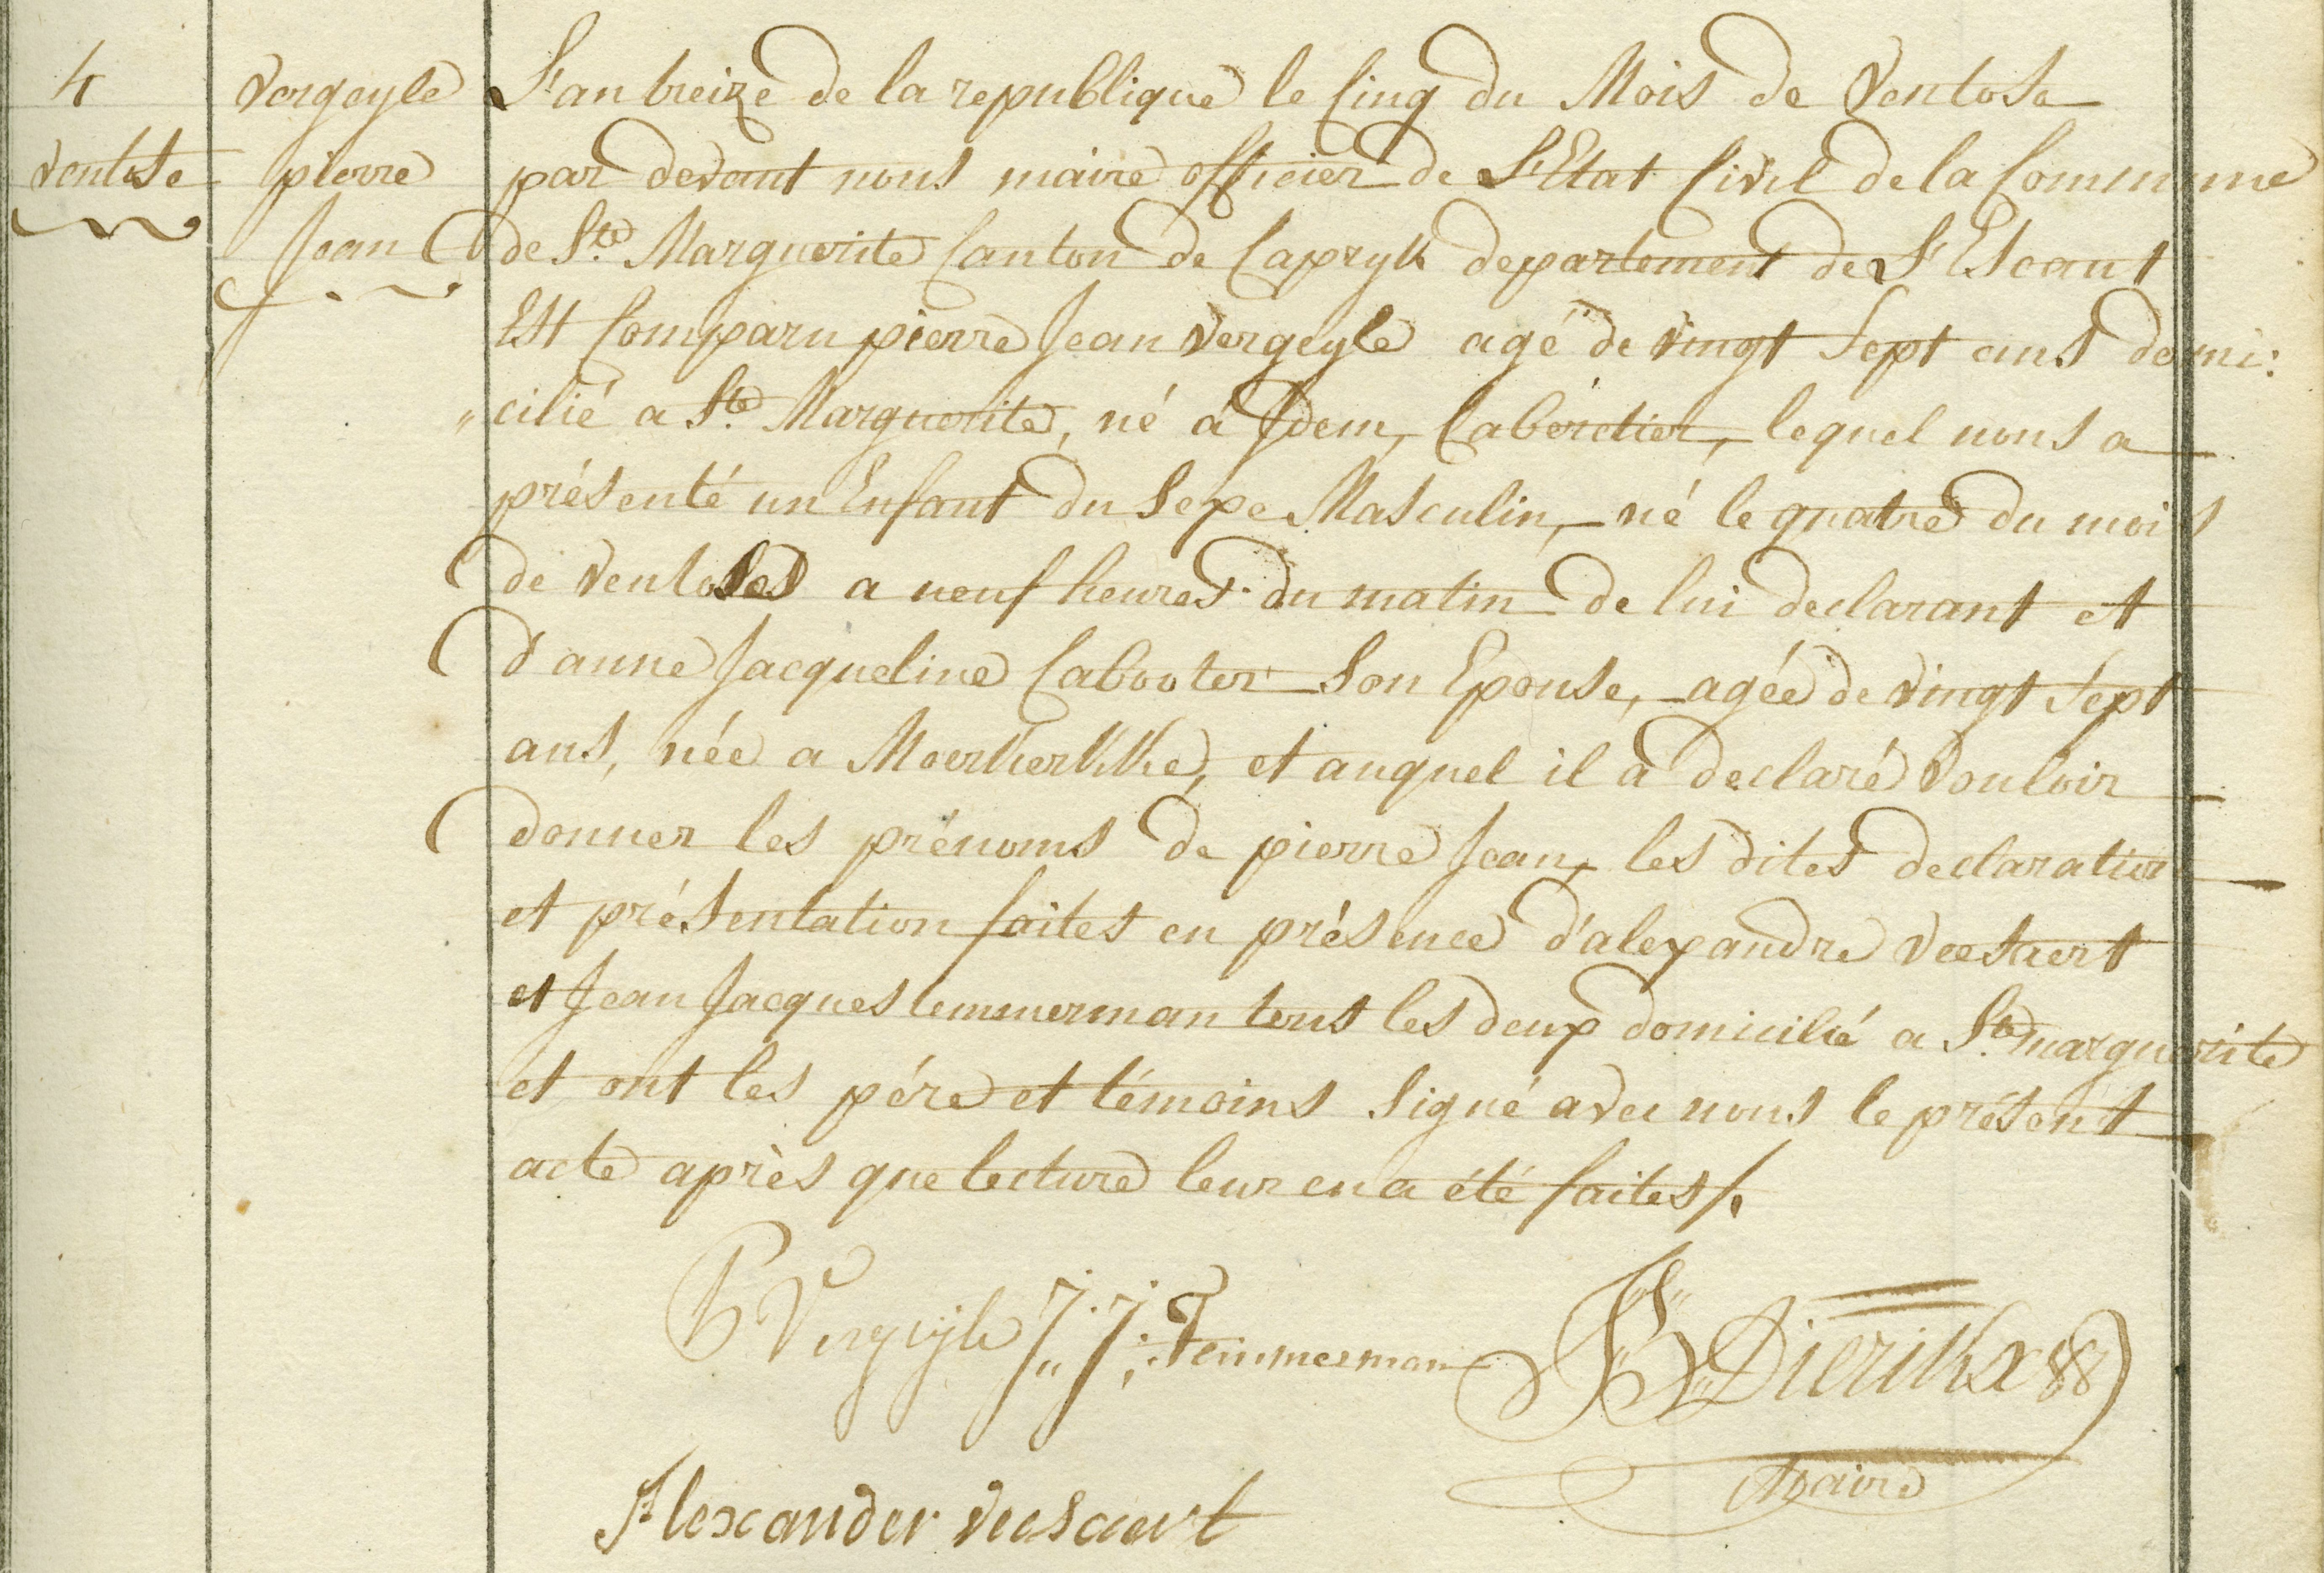 4
ventose
Vergeyle
pierre
Jean
L'an treize de la republique le Cinq du Mois de Ventose
par devant nous maire officier de L'Etat Civil de la Commune
de Ste. Marguerite Canton de Capryk departement de L'Escaut
Est Comparu pierre Jean Vergeyle agé de vingt Sept ans domi:
"cilié a Ste. Marguerite, né à Idem, Cabéretier, lequel nous a
présenté un Enfant du Sexe Masculin, né le quatre du mois
de Ventose a neuf heures du matin de lui declarant et
d'anne Jacqueline Cabooter Son Epouse, agée de vingt Sept
ans, née a Moerkerkke, et auquel il a declaré vouloir
donner les prénoms de pierre Jean, les dites declaration
et présentation faites en présence d'alexandre Veestaert
et Jean Jacques temmerman tous les deux domicilié a Ste. marguerite
et ont les pére et témoins Signé avec nous le présent
acte après que lecture leur en a été faites/.
P Vergeyle J: J: Temmerman Dierikx
Maire
Alexander veesaert